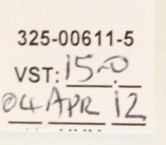 325-00611-5
VST: 15-0
04 APR 12